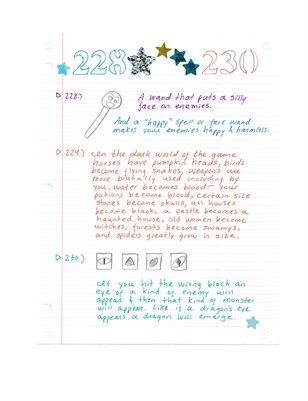 228 230
228.) A wand that puts a silly
face on enemies.
And a "happy" spell or face wand
makes your enemies happy & harmless.
229.) In the dark world of the game
horses have pumpkin heads, birds
become flying snakes, weapons are
more brutally used including by
you, water becomes blood - your
potions become blood, certain size
stones become skulls, all houses
become black, a castle becomes a
haunted house, old women become
witches, forests become swamps,
and spiders greatly grow in size.
230.)
If you hit the wrong block an
eye of a kind of enemy will
appear & then that kind of monster
will appear. Like if a dragon's eye
appears a dragon will emerge.